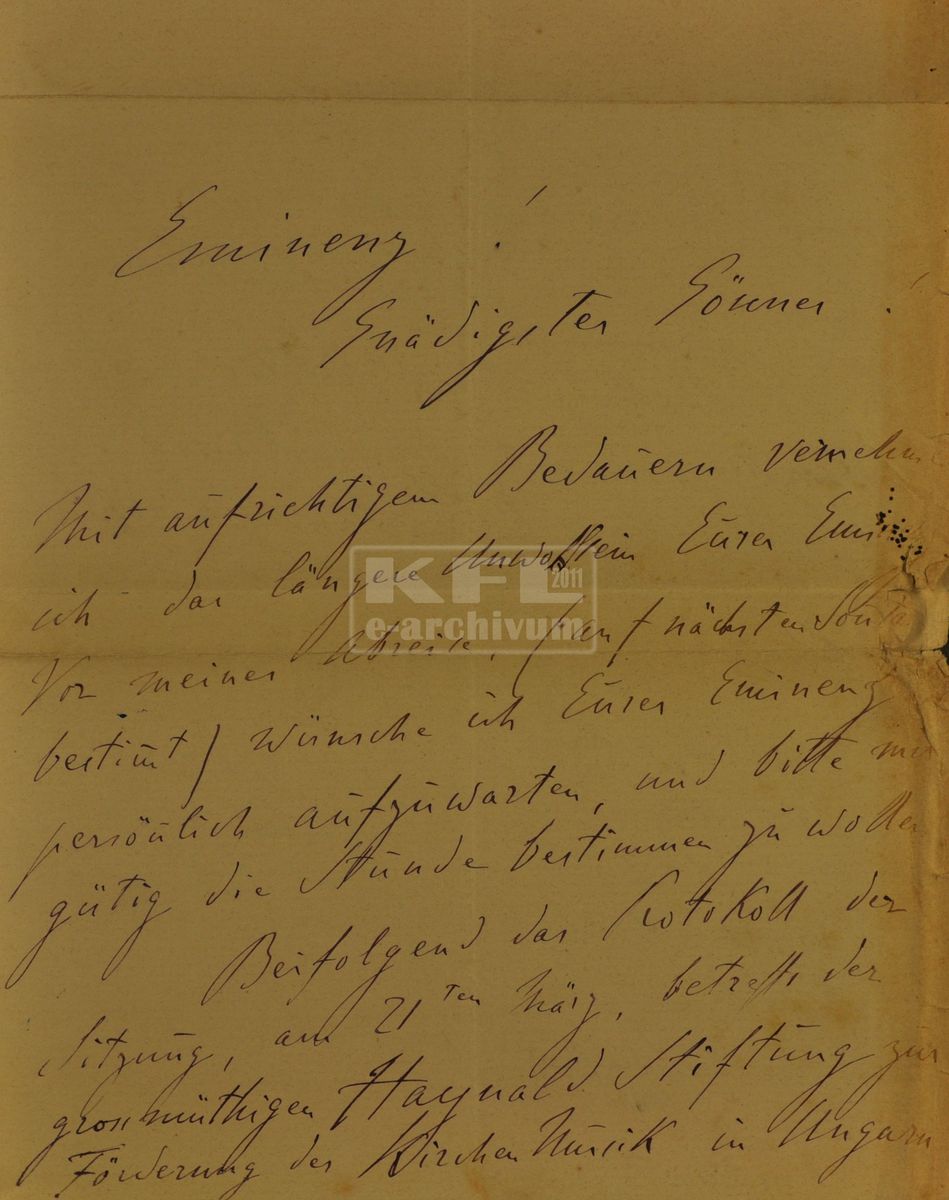 Eminenz !
Gnädigster Gönner !
Mit aufrichtigem Bedauern vernehme
ich das längere Unwohlsein Eurer
Vor meiner Abreise, (auf nächsten
bestimt) wünsche ich Eurer Eminenz
persönlich aufzuwarten, und bitte mir
gütig die Stunde bestimmen zu wollen
Beifolgend das Protokoll der
Sitzung, am 21ten März, betreffs der
grossmüthigen Haynald Stiftung zur
Förderung der Kirchen Musik in Ungarn
KFL 2011
e-archivum